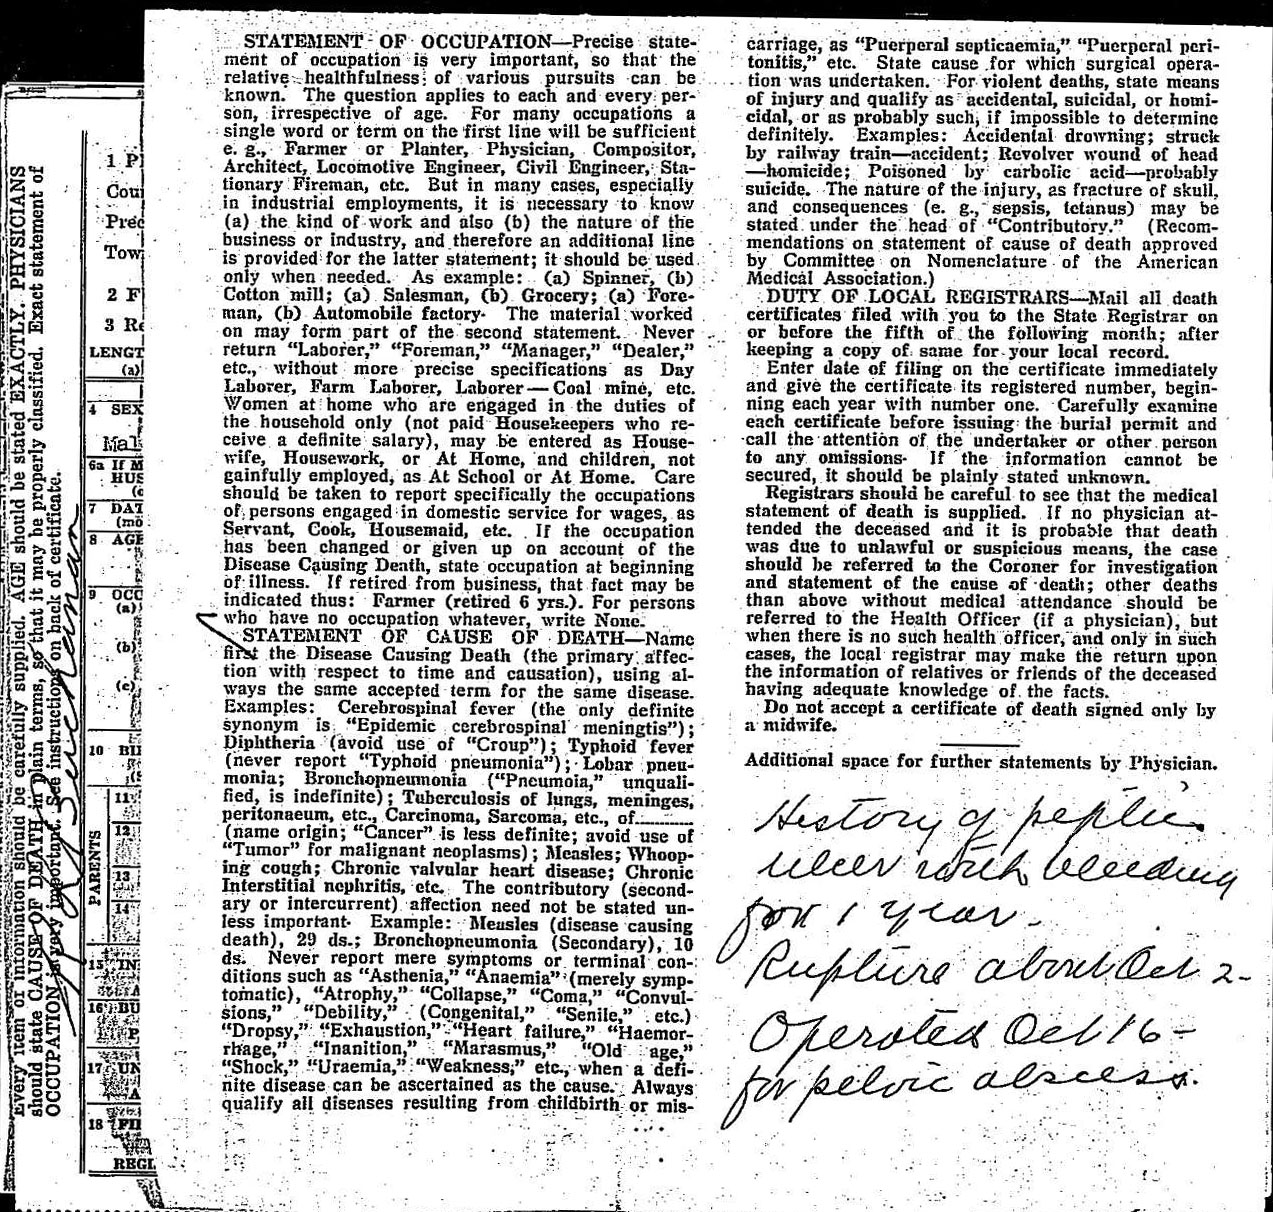 Every item of information should be carefully supplied. AGE should be stated EXACTLY. PHYSICIANS
should state CAUSE OF DEATH in plain terms, so that it may be properly classified. Exact statement of
OCCUPATION is very important. See instructions on back of certificate.
1 P
Cou
Prec
Tow
2 F
3 Re
LENGT
(a)
4 SEX
Mal
6a If M
HUS
(o
7 DAT
(mo
8 AGE
9 OCC
(a)
(b)
(c)
10 BI
PARENTS
11
12
13
14
15 IN
16 BU
P
17 UN
A
18 FI
REGI
STATEMENT OF OCCUPATION—Precise state-
ment of occupation is very important, so that the
relative healthfulness of various pursuits can be
known. The question applies to each and every per-
son, irrespective of age. For many occupations a
single word or term on the first line will be sufficient
e. g., Farmer or Planter, Physician, Compositor,
Architect, Locomotive Engineer, Civil Engineer, Sta-
tionary Fireman, etc. But in many cases, especially
in industrial employments, it is necessary to know
(a) the kind of work and also (b) the nature of the
business or industry, and therefore an additional line
is provided for the latter statement; it should be used
only when needed. As example: (a) Spinner, (b)
Cotton mill; (a) Salesman, (b) Grocery; (a) Fore-
man, (b) Automobile factory. The material worked
on may form part of the second statement. Never
return "Laborer," "Foreman," "Manager," "Dealer,"
etc., without more precise specifications as Day
Laborer, Farm Laborer, Laborer—Coal mine, etc.
Women at home who are engaged in the duties of
the household only (not paid Housekeepers who re-
ceive a definite salary), may be entered as House-
wife, Housework, or At Home, and children, not
gainfully employed, as At School or At Home. Care
should be taken to report specifically the occupations
of persons engaged in domestic service for wages, as
Servant, Cook, Housemaid, etc. If the occupation
has been changed or given up on account of the
Disease Causing Death, state occupation at beginning
of illness. If retired from business, that fact may be
indicated thus: Farmer (retired 6 yrs.). For persons
who have no occupation whatever, write None.
STATEMENT OF CAUSE OF DEATH—Name
first the Disease Causing Death (the primary affec-
tion with respect to time and causation), using al-
ways the same accepted term for the same disease.
Examples: Cerebrospinal fever (the only definite
synonym is "Epidemic cerebrospinal meningtis");
Diphtheria (avoid use of "Croup"); Typhoid fever
(never report "Typhoid pneumonia"); Lobar pneu-
monia; Bronchopneumonia ("Pneumoia," unquali-
fied, is indefinite); Tuberculosis of lungs, meninges,
peritonaeum, etc., Carcinoma, Sarcoma, etc., of
(name origin; "Cancer" is less definite; avoid use of
"Tumor" for malignant neoplasms); Measles; Whoop-
ing cough; Chronic valvular heart disease; Chronic
Interstitial nephritis, etc. The contributory (second-
ary or intercurrent) affection need not be stated un-
less important. Example: Measles (disease causing
death), 29 ds.; Bronchopneumonia (Secondary), 10
ds. Never report mere symptoms or terminal con-
ditions such as "Asthenia," "Anaemia" (merely symp-
tomatic), "Atrophy," "Collapse," "Coma," "Convul-
sions," "Debility," (Congenital," "Senile," etc.)
"Dropsy," "Exhaustion," "Heart failure," "Haemor-
rhage," "Inanition," "Marasmus," "Old age,"
"Shock," "Uraemia," "Weakness," etc., when a defi-
nite disease can be ascertained as the cause. Always
qualify all diseases resulting from childbirth or mis-
carriage, as "Puerperal septicaemia," "Puerperal peri-
tonitis," etc. State cause for which surgical opera-
tion was undertaken. For violent deaths, state means
of injury and qualify as accidental, suicidal, or homi-
cidal, or as probably such, if impossible to determine
definitely. Examples: Accidental drowning; struck
by railway train—accident; Revolver wound of head
—homicide; Poisoned by carbolic acid—probably
suicide. The nature of the injury, as fracture of skull,
and consequences (e. g., sepsis, tetanus) may be
stated under the head of "Contributory." (Recom-
mendations on statement of cause of death approved
by Committee on Nomenclature of the American
Medical Association.)
DUTY OF LOCAL REGISTRARS—Mail all death
certificates filed with you to the State Registrar on
or before the fifth of the following month; after
keeping a copy of same for your local record.
Enter date of filing on the certificate immediately
and give the certificate its registered number, begin-
ning each year with number one. Carefully examine
each certificate before issuing the burial permit and
call the attention of the undertaker or other person
to any omissions. If the information cannot be
secured, it should be plainly stated unknown.
Registrars should be careful to see that the medical
statement of death is supplied. If no physician at-
tended the deceased and it is probable that death
was due to unlawful or suspicious means, the case
should be referred to the Coroner for investigation
and statement of the cause of death; other deaths
than above without medical attendance should be
referred to the Health Officer (if a physician), but
when there is no such health officer, and only in such
cases, the local registrar may make the return upon
the information of relatives or friends of the deceased
having adequate knowledge of the facts.
Do not accept a certificate of death signed only by
a midwife.
Additional space for further statements by Physician.
History of peptic
ulcer with bleeding
for 1 year.
Rupture about Oct 2-
Operated Oct 16-
for pelvic abscess.